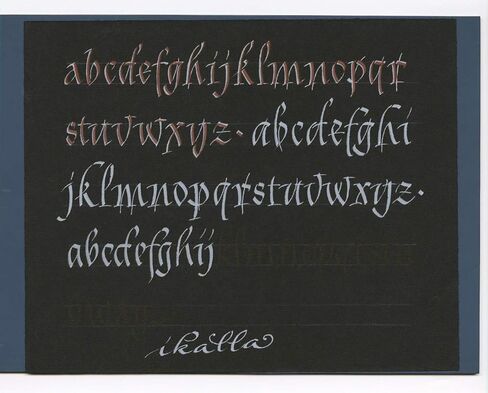 abcdefghijklmnopqr
stuvwxyz· abcdefghi
jklmnopqrstuvwxyz·
abcdefghij
ikalla